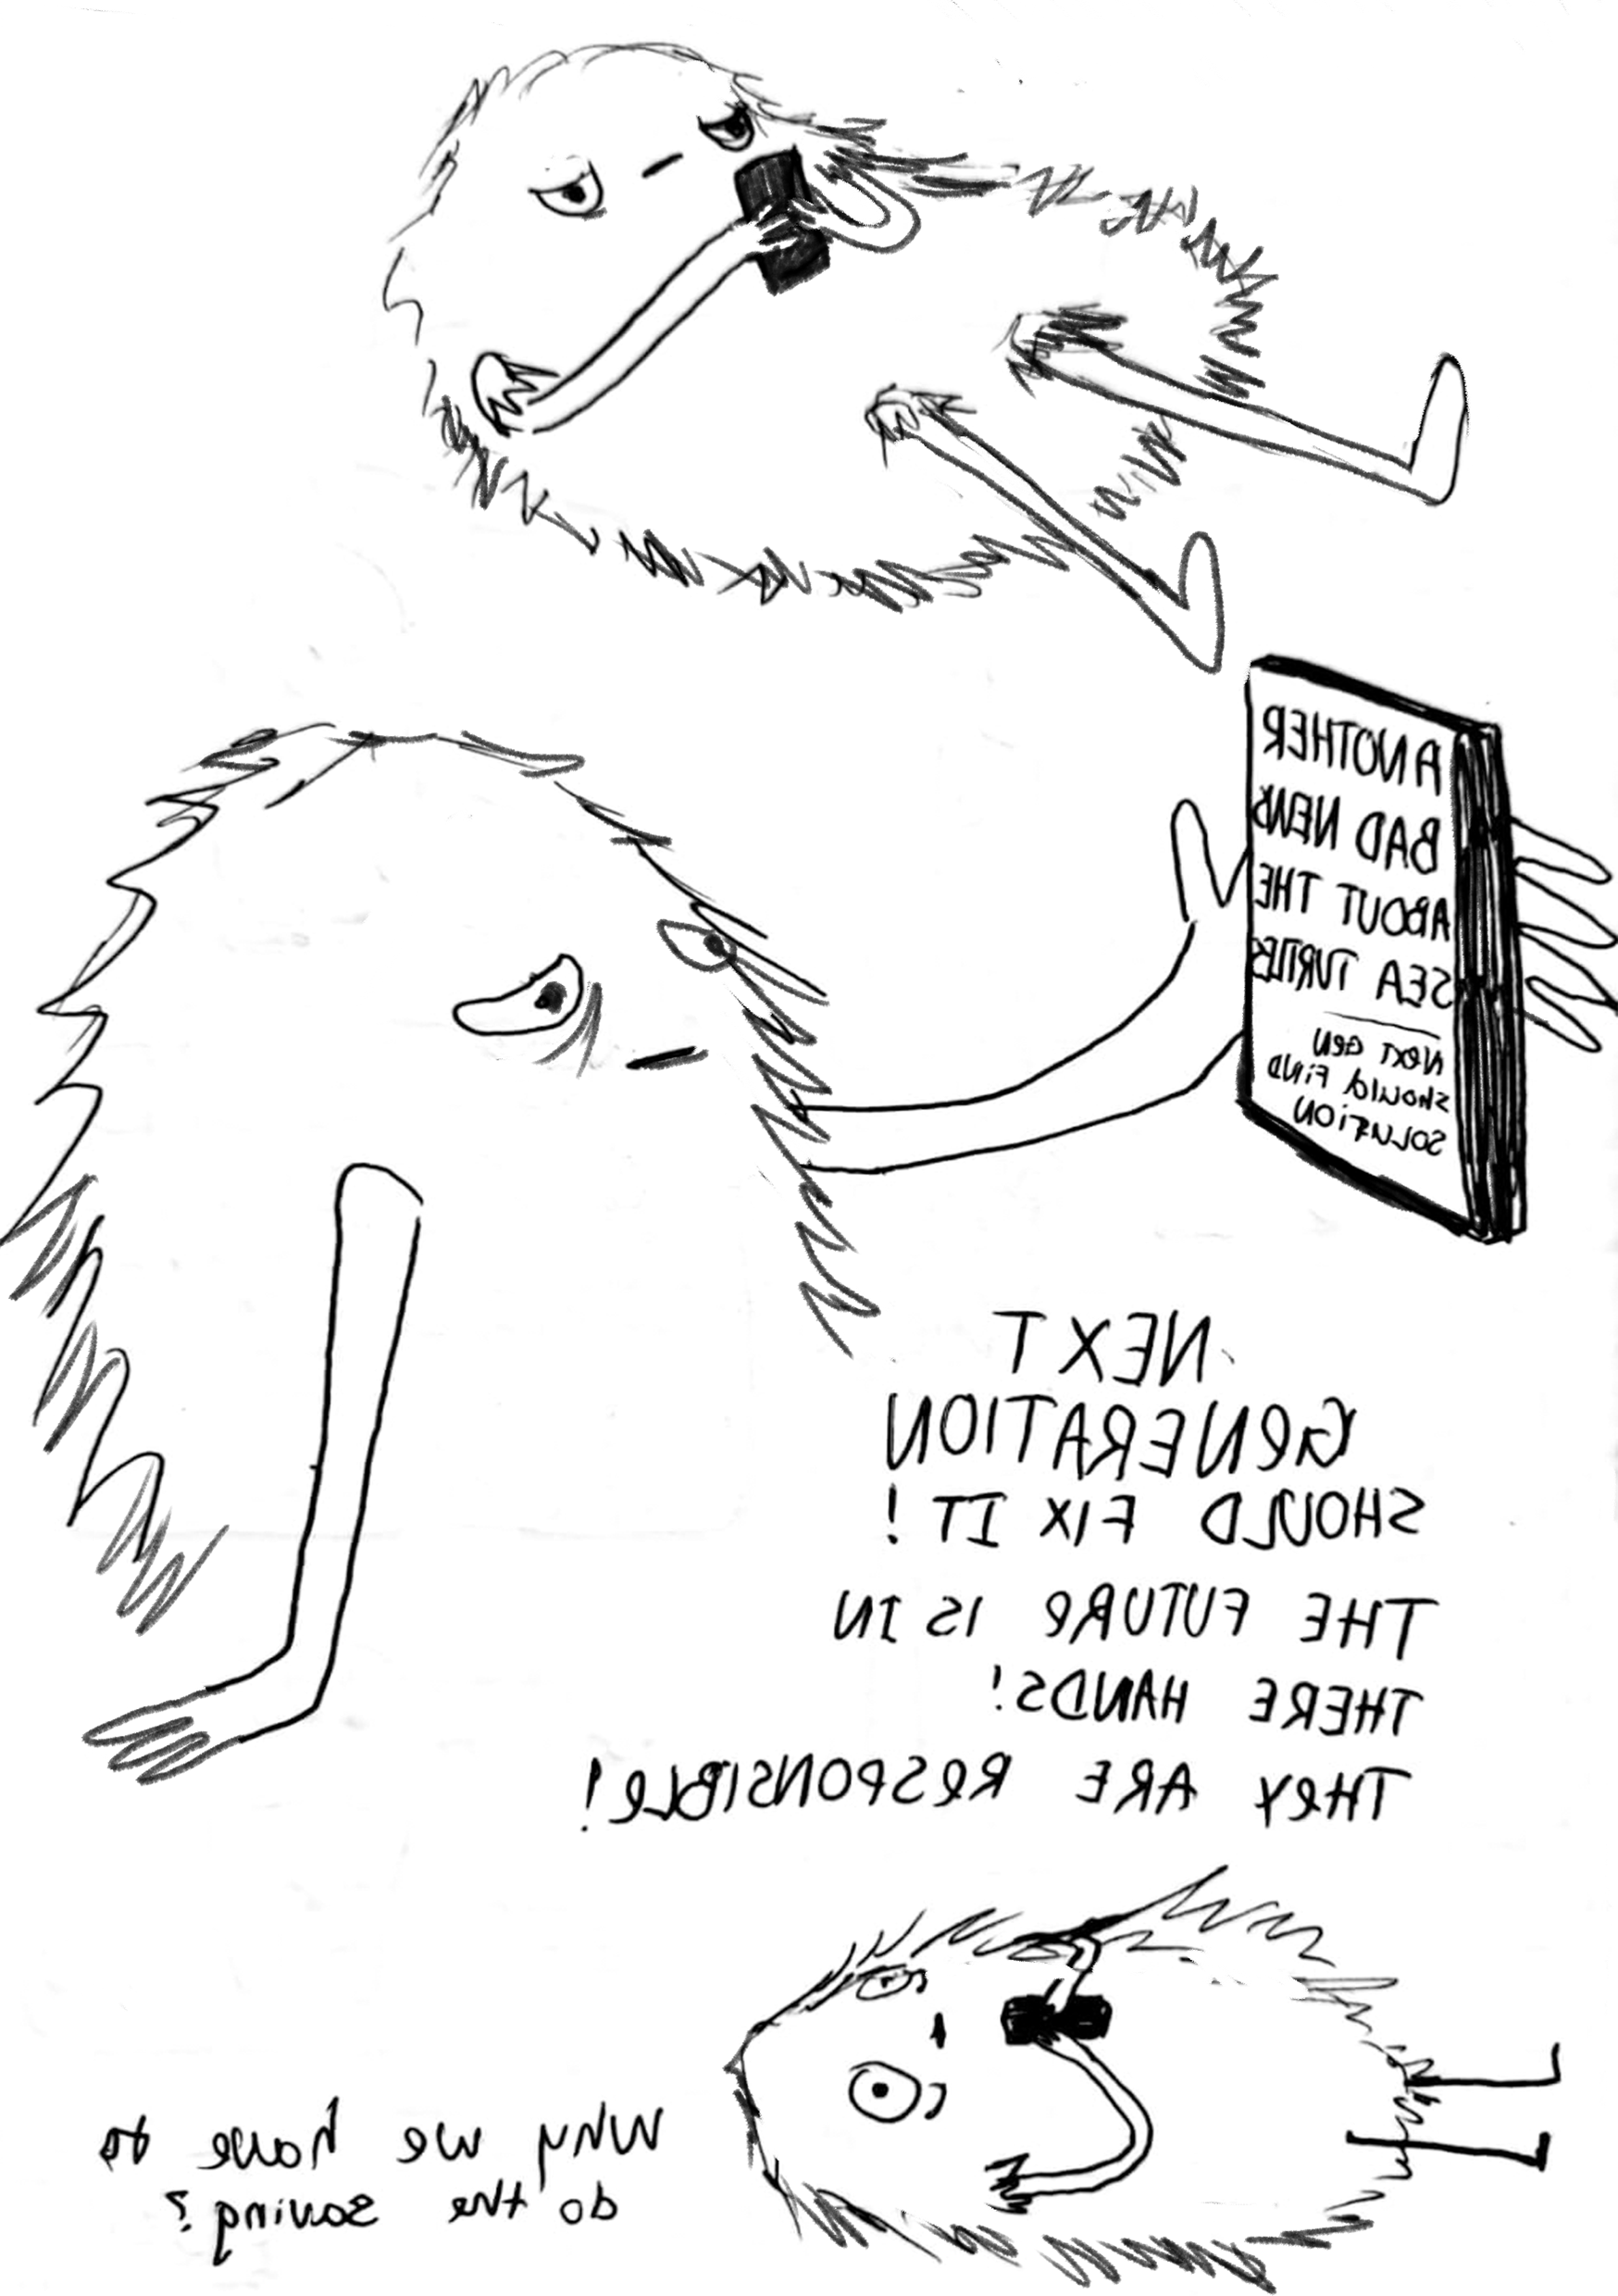 ANOTHER
BAD NEWS
ABOUT THE
SEA TURTLES
NexT GeN
should FiND
SOLUTiON
NEXT
GeNERATION
SHOULD FIX IT!
THE FUTURe IS IN
THERE HANDS!
THey ARE ReSPONSIBLe!
Why we have to
do the saving?